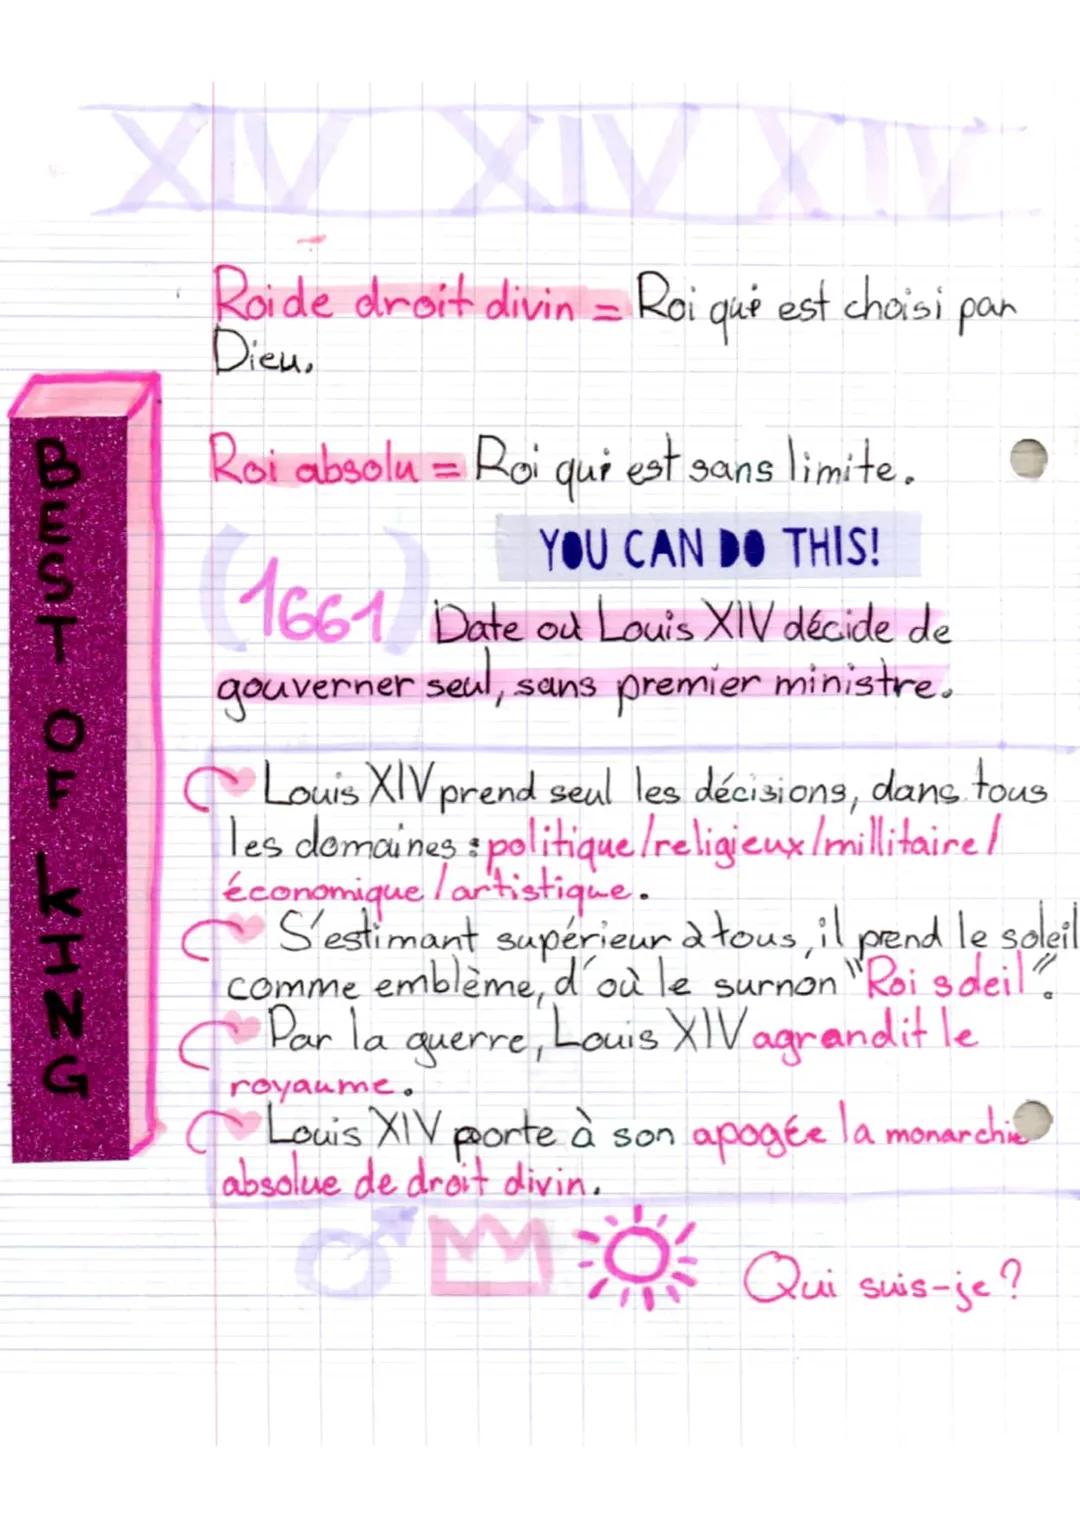 XIV XIV XIV
Roi de droit divin = Roi qui est choisi par
Dieu.
Roi absolu = Roi qui est sans limite.
YOU CAN DO THIS!
(1661) Date où Louis XIV décide de
gouverner seul, sans premier ministre.
Louis XIV prend seul les décisions, dans tous
les domaines : politique/religieux/millitaire/
économique/artistique.
S'estimant supérieur à tous, il prend le soleil
comme emblème, d'où le surnon "Roi soleil".
Par la guerre, Louis XIV agrandit le
royaume.
Louis XIV porte à son apogée la monarchie
absolue de droit divin.
Qui suis-je ?
BEST OF KING